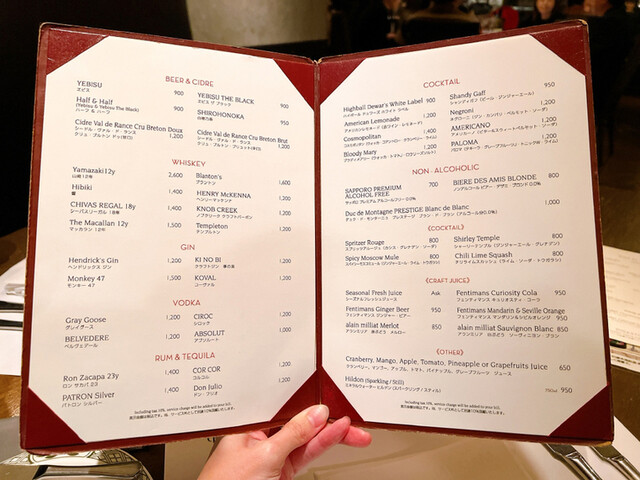 BEER & CIDRE
YEBISU 900
エビス
YEBISU THE BLACK 900
エビス ザ ブラック
Half & Half 900
(Yebisu & Yebisu The Black)
ハーフ & ハーフ
SHIROHONOKA 900
Cidre Val de Rance Cru Breton Doux 1,200
Cidre Val de Rance Cru Breton Brut 1,200
WHISKEY
Yamazaki12y 2,600
山崎 12年
Blanton's 1,600
ブラントン
Hibiki 1,400
響
HENRY McKENNA 1,200
ヘンリーマッケンナ
CHIVAS REGAL 18y 1,400
シーバスリーガル 18年
KNOB CREEK 1,200
The Macallan 12y 1,500
マッカラン 12年
Templeton 1,200
テンプルトン
GIN
Hendrick's Gin 1,200
ヘンドリックス ジン
KI NO BI 1,200
クラフトジン 季の美
Monkey 47 1,500
モンキー 47
KOVAL 1,200
コーヴァル
VODKA
Gray Goose 1,200
グレイグース
CIROC 1,200
シロック
BELVEDERE 1,200
ベルヴェデール
ABSOLUT 1,200
アブソルート
RUM & TEQUILA
Ron Zacapa 23y 1,400
ロン サカパ 23
COR COR 1,200
コルコル
PATRON Silver 1,400
パトロン シルバー
Don Julio 1,200
ドン・フリオ
Including tax 10%, service charge will be added to your bill.
COCKTAIL
Highball Dewar's White Label 900
ハイボール デュワーズ ホワイト ラベル
Shandy Gaff 950
シャンディガフ (ビール ジンジャーエール)
American Lemonade 1,200
アメリカンレモネード (赤ワイン レモネード)
Negroni 1,200
Cosmopolitan 1,400
AMERICANO 1,200
Bloody Mary 1,200
PALOMA 1,200
NON - ALCOHOLIC
SAPPORO PREMIUM 700
ALCOHOL FREE
BIERE DES AMIS BLONDE 800
Duc de Montagne PRESTIGE Blanc de Blanc 1,000
(COCKTAIL)
Spritzer Rouge 800
Shirley Temple 800
Spicy Moscow Mule 800
Chili Lime Squash 800
(CRAFT JUICE)
Seasonal Fresh Juice Ask
シーズナルフレッシュジュース
Fentimans Curiosity Cola 950
フェンティマンス キュリオスティ・コーラ
Fentimans Ginger Beer 950
フェンティマンス ジンジャー・ビアー
Fentimans Mandarin & Seville Orange 950
alain milliat Merlot 850
アランミリア ぶどう メルロー
alain milliat Sauvignon Blanc 850
アランミリア ぶどう ソーヴィニヨン・ブラン
(OTHER)
Cranberry, Mango, Apple, Tomato, Pineapple or Grapefruits Juice 650
クランベリー、マンゴー、アップル、トマト、パイナップル、グレープフルーツ ジュース
Hildon (Sparkling / Still) 750ml 950
ミネラルウォーター ヒルドン (スパークリング / スティル)
Including tax 10%, service charge will be added to your bill.